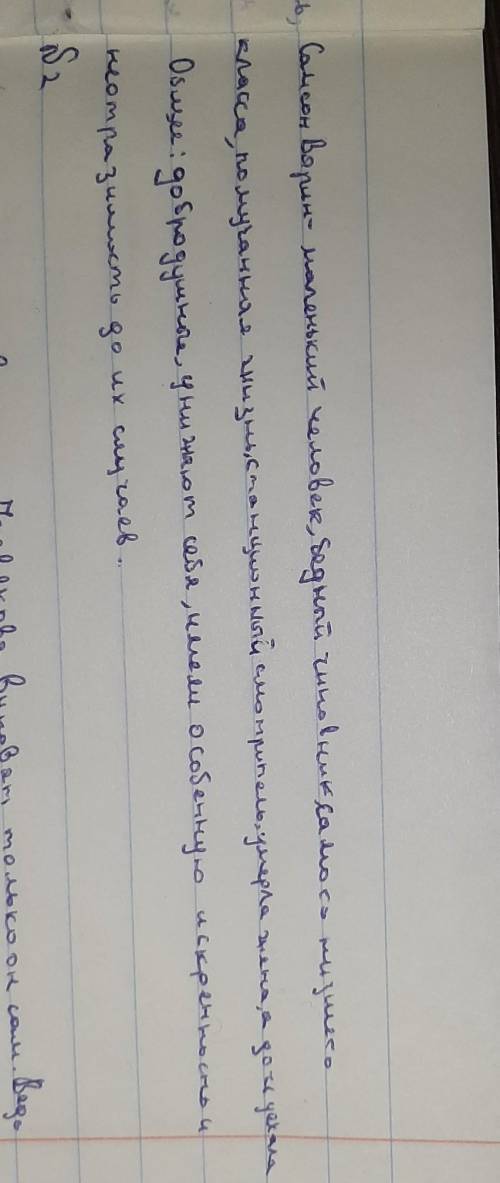 Самсон Вырин - маленький человек, бедный чиновник самого низшего
класса, помученная жизнь, станционный смотритель, умерла жена, а дочь уехала
Общее: добродушные, унижают себя, имели особенную искренность и
неотразимость до их случаев.
№2
виноват только он сам. Ведь